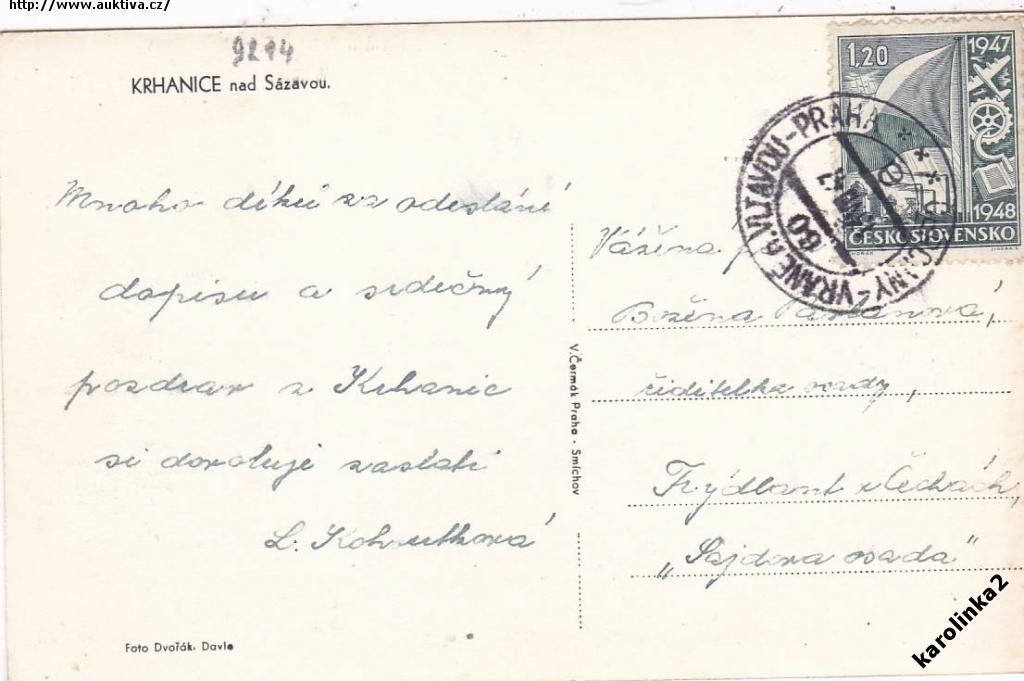 http://www.auktiva.cz/
9214
KRHANICE nad Sázavou.
Mnoho díků za odeslání
dopisu a srdečný
pozdrav z Krhanic
si dovoluje zaslati
L. Kohoutková
Foto Dvořák, Davle
V. Čermák Praha - Smíchov
1,20
1947
1948
ČESKOSLOVENSKO
VRANÉ n. VLTAVOU-PRAHA
60
Vážená
Božena
ředitelka osady,
Frýdlant v Čechách,
„Sajdova osada"
karolinka2